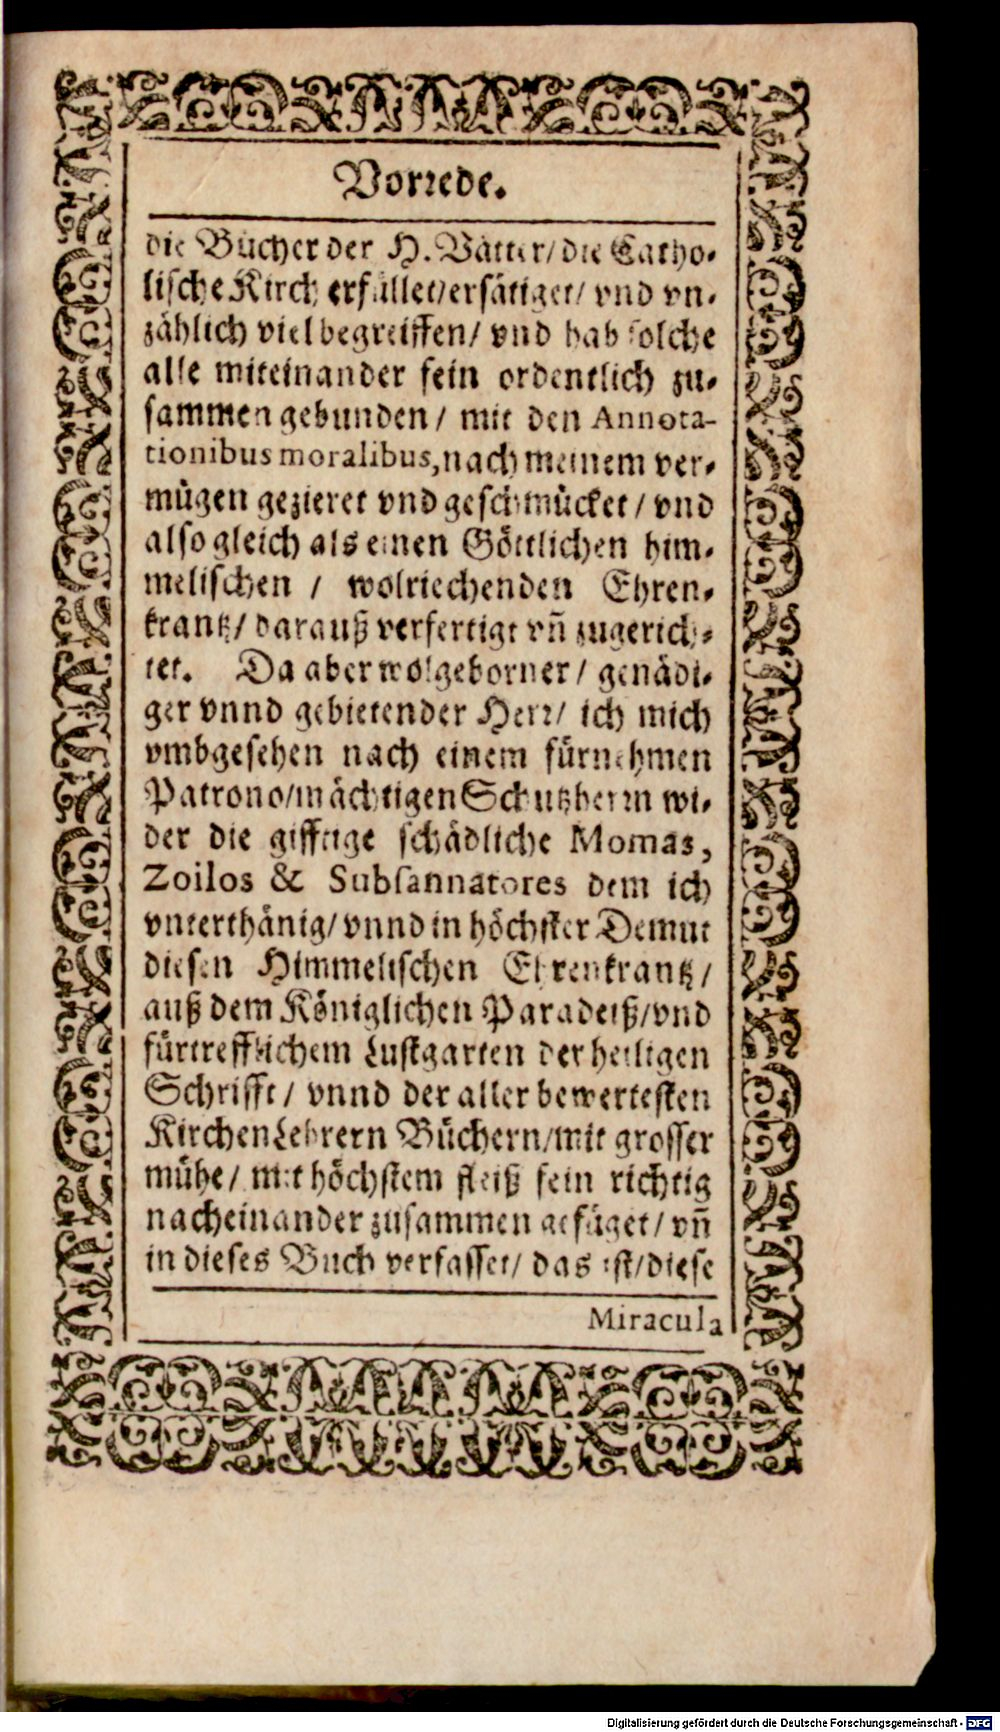 Vorrede.
die Bücher der H. Vätter/ die Catho-
lische Kirch erfüllet/ersätiget/ vnd vn-
zählich viel begreiffen/ vnd hab solche
alle miteinander fein ordentlich zu-
sammen gebunden/ mit den Annota-
tionibus moralibus, nach meinem ver-
mügen gezieret vnd geschmücket/ vnd
also gleich als einen Göttlichen him-
melischen / wolriechenden Ehren-
krantz/ darauß verfertigt vñ zugerich-
tet. Da aber wolgeborner/ genädi-
ger vnnd gebietender Herr/ ich mich
vmbgesehen nach einem fürnehmen
Patrono/mächtigen Schutzherrn wi-
der die gifftige schädliche Momas,
Zoilos & Subsannatores dem ich
vnterthänig/ vnnd in höchster Demut
diesen Himmelischen Ehrenkrantz/
auß dem Königlichen Paradeiß/vnd
fürtrefflichem Lustgarten der heiligen
Schrifft/ vnnd der aller bewertesten
Kirchen Lehrern Büchern/mit grosser
mühe/ mit höchstem fleiß fein richtig
nacheinander zusammen gefüget/ vñ
in dieses Buch verfasset/ das ist/diese
Miracula
Digitalisierung gefördert durch die Deutsche Forschungsgemeinschaft - DFG